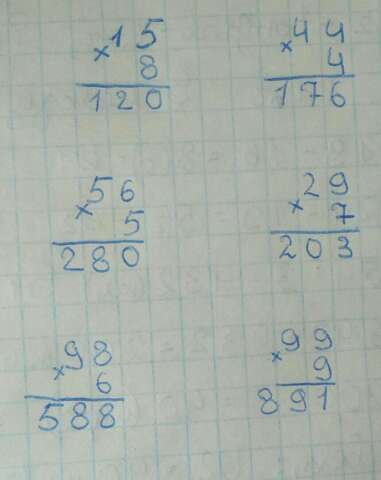 ×15
8
120
×44
4
176
×56
5
280
×29
7
203
×98
6
588
×99
9
891